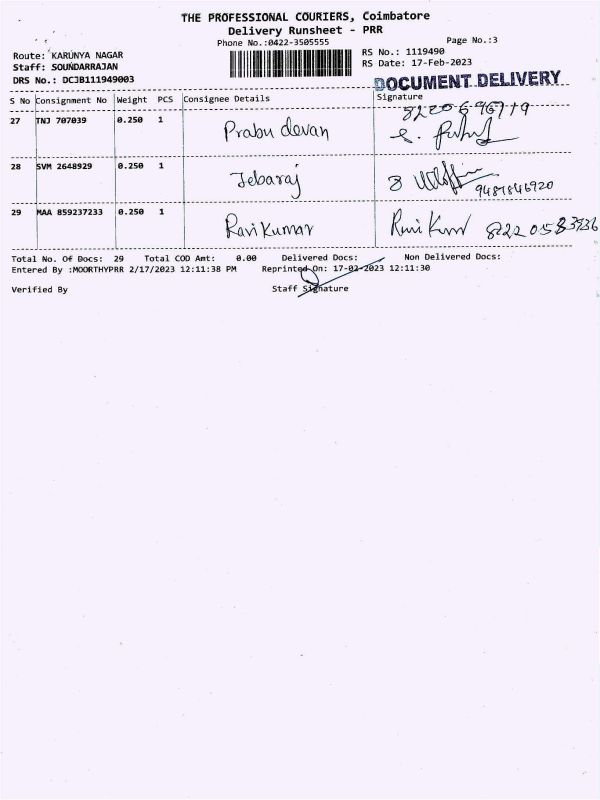 THE PROFESSIONAL COURIERS, Coimbatore
Delivery Runsheet - PRR
Phone No.:0422-3505555 Page No.:3
Route: KARUNYA NAGAR RS No.: 1119490
Staff: SOUNDARRAJAN RS Date: 17-Feb-2023
DRS No.: DCJB111949003 DOCUMENT DELIVERY
S No Consignment No Weight PCS Consignee Details Signature
27 TNJ 707039 0.250 1 Prabu devan
28 SVM 2648929 0.250 1 Jebaraj 9487846920
29 MAA 859237233 0.250 1 Ravi Kumar Ravi Kumar
Total No. Of Docs: 29 Total COD Amt: 0.00 Delivered Docs: Non Delivered Docs:
Entered By :MOORTHYPRR 2/17/2023 12:11:38 PM Reprinted On: 17-02-2023 12:11:30
Verified By Staff Signature